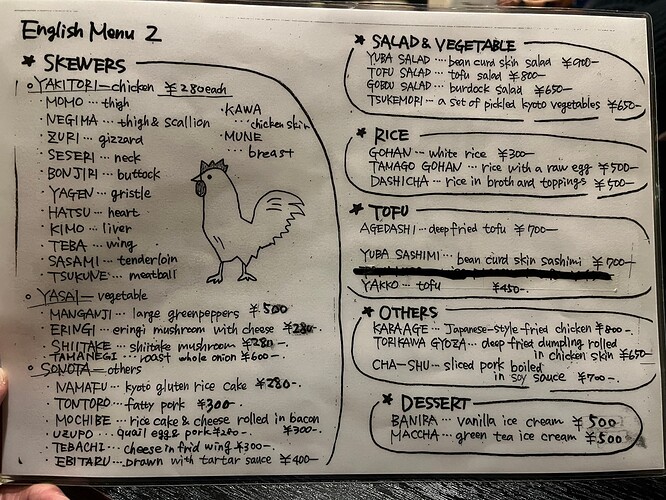 English Menu 2
★ SKEWERS
○ YAKITORI—chicken ¥280each
・MOMO … thigh
・NEGIMA … thigh & scallion
・ZURI … gizzard
・SESERI … neck
・BONJIRI … buttock
・YAGEN … gristle
・HATSU … heart
・KIMO … liver
・TEBA … wing
・SASAMI … tenderloin
・TSUKUNE … meatball
・KAWA
… chicken skin
・MUNE
… breast
○ YASAI— vegetable
・MANGANJI … large greenpeppers ¥500
・ERINGI … eringi mushroom with cheese ¥280-
・SHIITAKE … shiitake mushroom ¥280-
・TAMANEGI … roast whole onion ¥600-
○ SONOTA—others
・NAMAFU … kyoto gluten rice cake ¥280-
・TONTORO … fatty pork ¥300-
・MOCHIBE … rice cake & cheese rolled in bacon
¥300-
・UZUPO … quail egg & pork
・TEBACHI … cheese in frid wing ¥300-
・EBITARU … prawn with tartar sauce ¥400-
★ SALAD & VEGETABLE
YUBA SALAD … bean curd skin salad ¥900-
TOFU SALAD … tofu salad ¥800-
GOBOU SALAD … burdock salad ¥650-
TSUKEMORI … a set of pickled kyoto vegetables ¥650-
★ RICE
GOHAN … white rice ¥300-
TAMAGO GOHAN … rice with a raw egg ¥500-
DASHICHA … rice in broth and toppings ¥500-
★ TOFU
AGEDASHI … deep fried tofu ¥700-
YUBA SASHIMI … bean curd skin sashimi ¥700-
YAKKO … tofu ¥450-
★ OTHERS
KARAAGE … Japanese-style-fried chicken ¥800-
TORIKAWA GYOZA … deep fried dumpling rolled
in chicken skin ¥650-
CHA-SHU … sliced pork boiled
in soy sauce ¥700-
★ DESSERT
BANIRA … vanilla ice cream ¥500
MACCHA … green tea ice cream ¥500